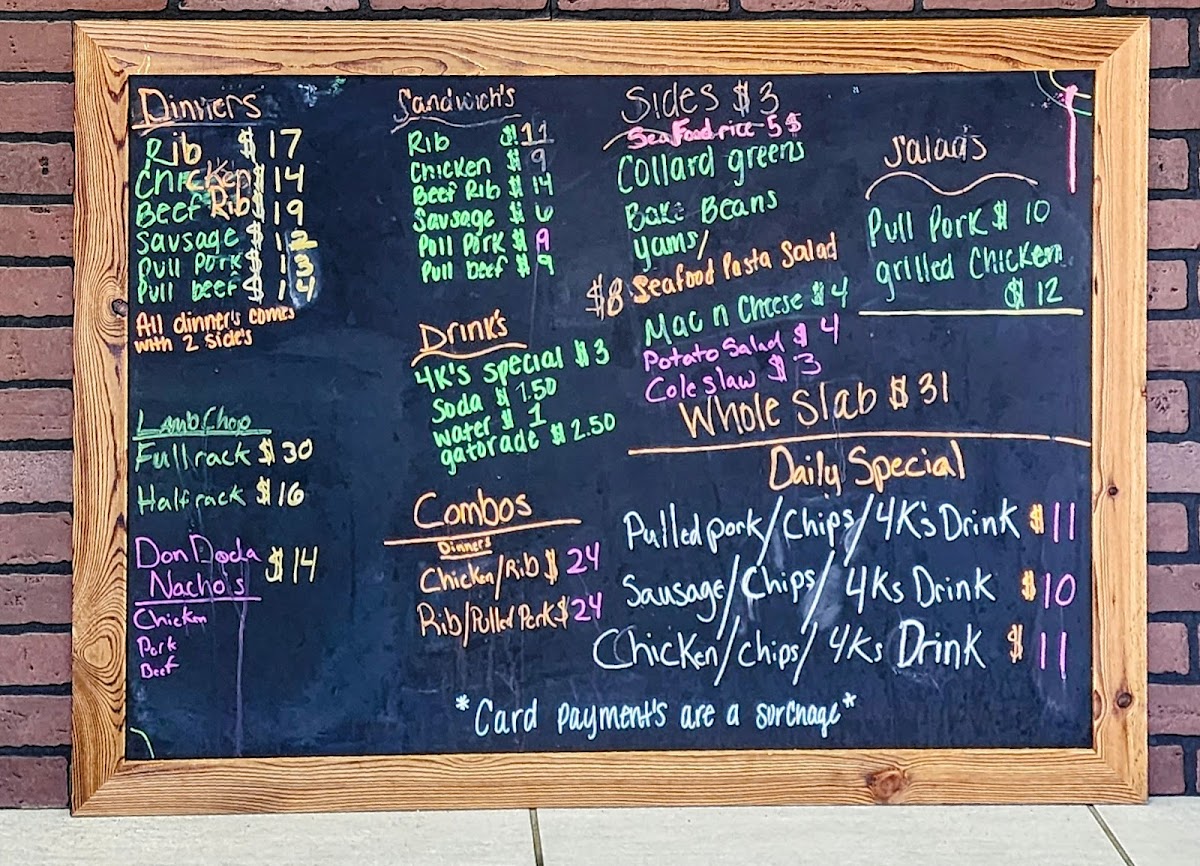 Dinners
Rib $17
Chicken $14
Beef Rib $19
Sausage $12
Pull Pork $13
Pull beef $14
All dinner's comes
with 2 side's
Lamb Chop
Full rack $30
Half rack $16
Don Doda $14
Nacho's
Chicken
Pork
Beef
Sandwich's
Rib $11
Chicken $9
Beef Rib $14
Sausage $6
Pull Pork $9
Pull beef $9
Drink's
4K's special $3
Soda $1.50
water $1
gatorade $2.50
Combos
Dinners
Chicken/Rib $24
Rib/Pulled Pork $24
Sides $3
Sea Food rice 5$
Collard greens
Bake Beans
yams/
$8 Seafood Pasta Salad
Mac n Cheese $4
Potato Salad $4
Cole slaw $3
Salads
Pull Pork $10
grilled Chicken
$12
Whole Slab $31
Daily Special
Pulled pork/Chips/4K's Drink $11
Sausage/Chips/4Ks Drink $10
Chicken/chips/4Ks Drink $11
*Card payment's are a surchage*